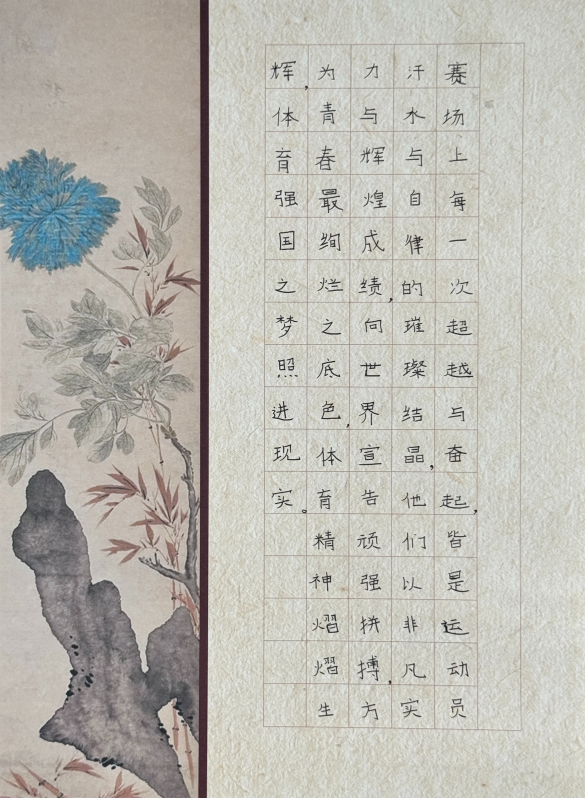 赛场上每一次超越与奋起，皆是运动员
汗水与自律的璀璨结晶，他们以非凡实
力与辉煌成绩，向世界宣告顽强拼搏，方
为青春最绚烂之底色，体育精神熠熠生
辉，体育强国之梦照进现实。